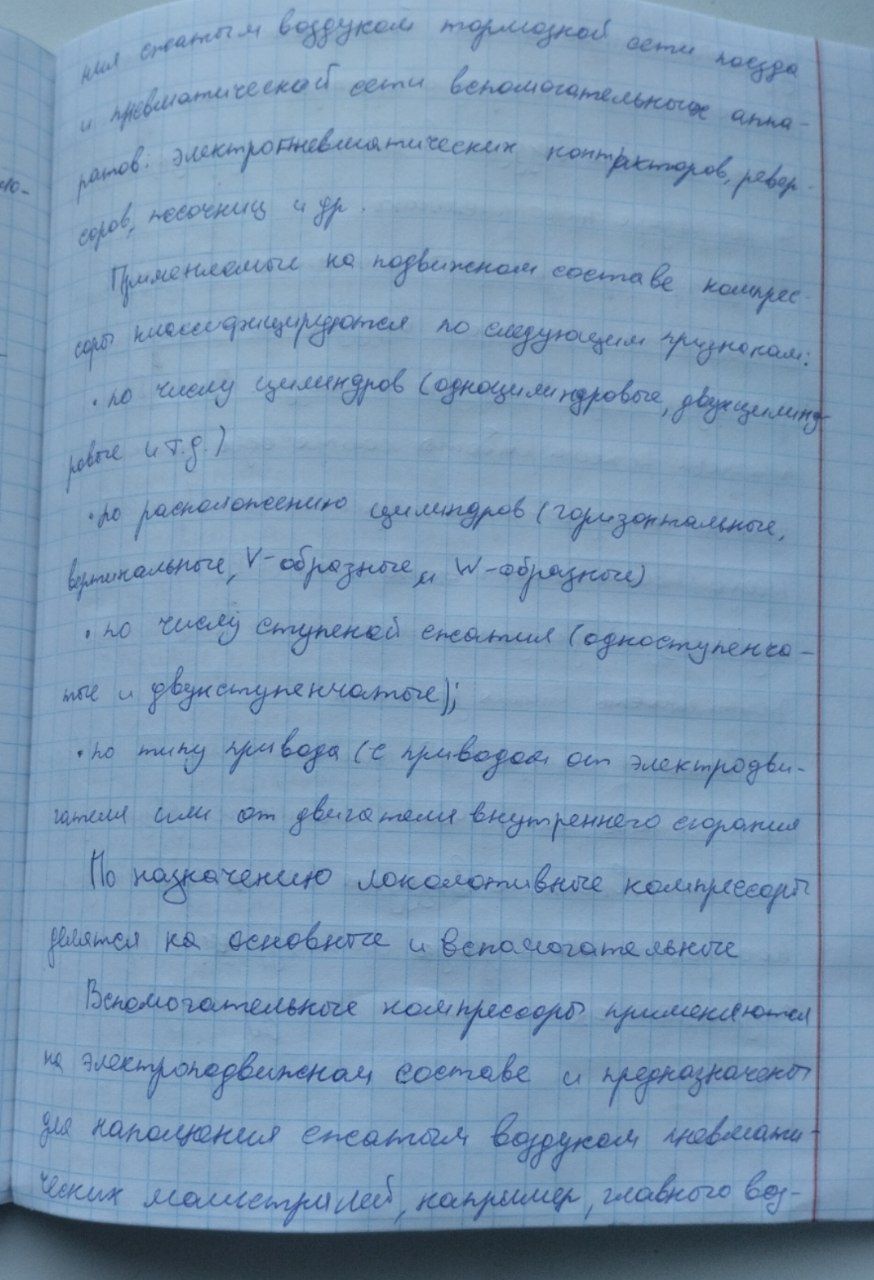 ния сжатым воздухом тормозной сети поезда
и пневматической сети вспомогательных аппа-
ратов: электропневматических контракторов, ревер-
соров, песочниц и др.
Применяемые на подвижном составе компрес-
соры классифицируются по следующим признакам:
• по числу цилиндров (одноцилиндровые, двухцилинд-
ровые и т.д.)
• по расположению цилиндров (горизонтальные,
вертикальные, V-образные и W-образные)
• по числу ступеней сжатия (одноступенча-
тые и двухступенчатые);
• по типу привода (с приводом от электродви-
гателя или от двигателя внутреннего сгорания
По назначению локомотивные компрессоры
делятся на основные и вспомогательные
Вспомогательные компрессоры применяются
на электроподвижном составе и предназначены
для наполнения сжатым воздухом пневмати-
ческих магистралей, например, главного воз-